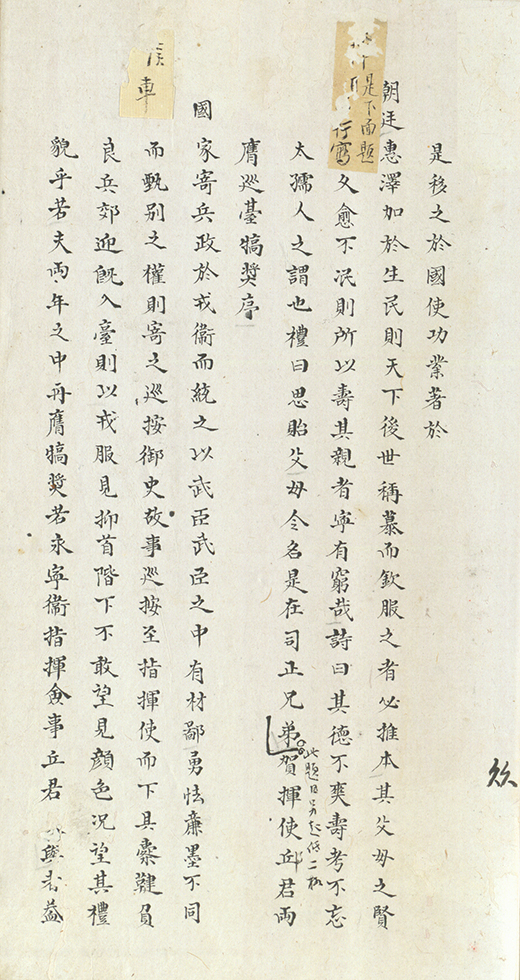 是移之於國使功業著於
朝廷惠澤加於生民則天下後世稱慕而欽服之者必推本其父母之賢
是下面題
行寫
久愈不泯則所以壽其親者寧有窮哉詩曰其德不爽壽考不忘
太孺人之謂也禮曰思貽父母令名是在司正兄弟賀揮使丘君兩
此題目另起低二格
膺巡臺犒奬序
國家寄兵政於戎衞而統之以武臣武臣之中有材鄙勇怯廉墨不同
而甄别之權則寄之巡按御史故事巡按至指揮使而下具櫜鞬負
車
良兵郊迎旣入臺則以戎服見抑首階下不敢望見顔色况望其禮
貌乎若夫兩年之中再膺犒奬若永寧衞指揮僉事丘君與書益